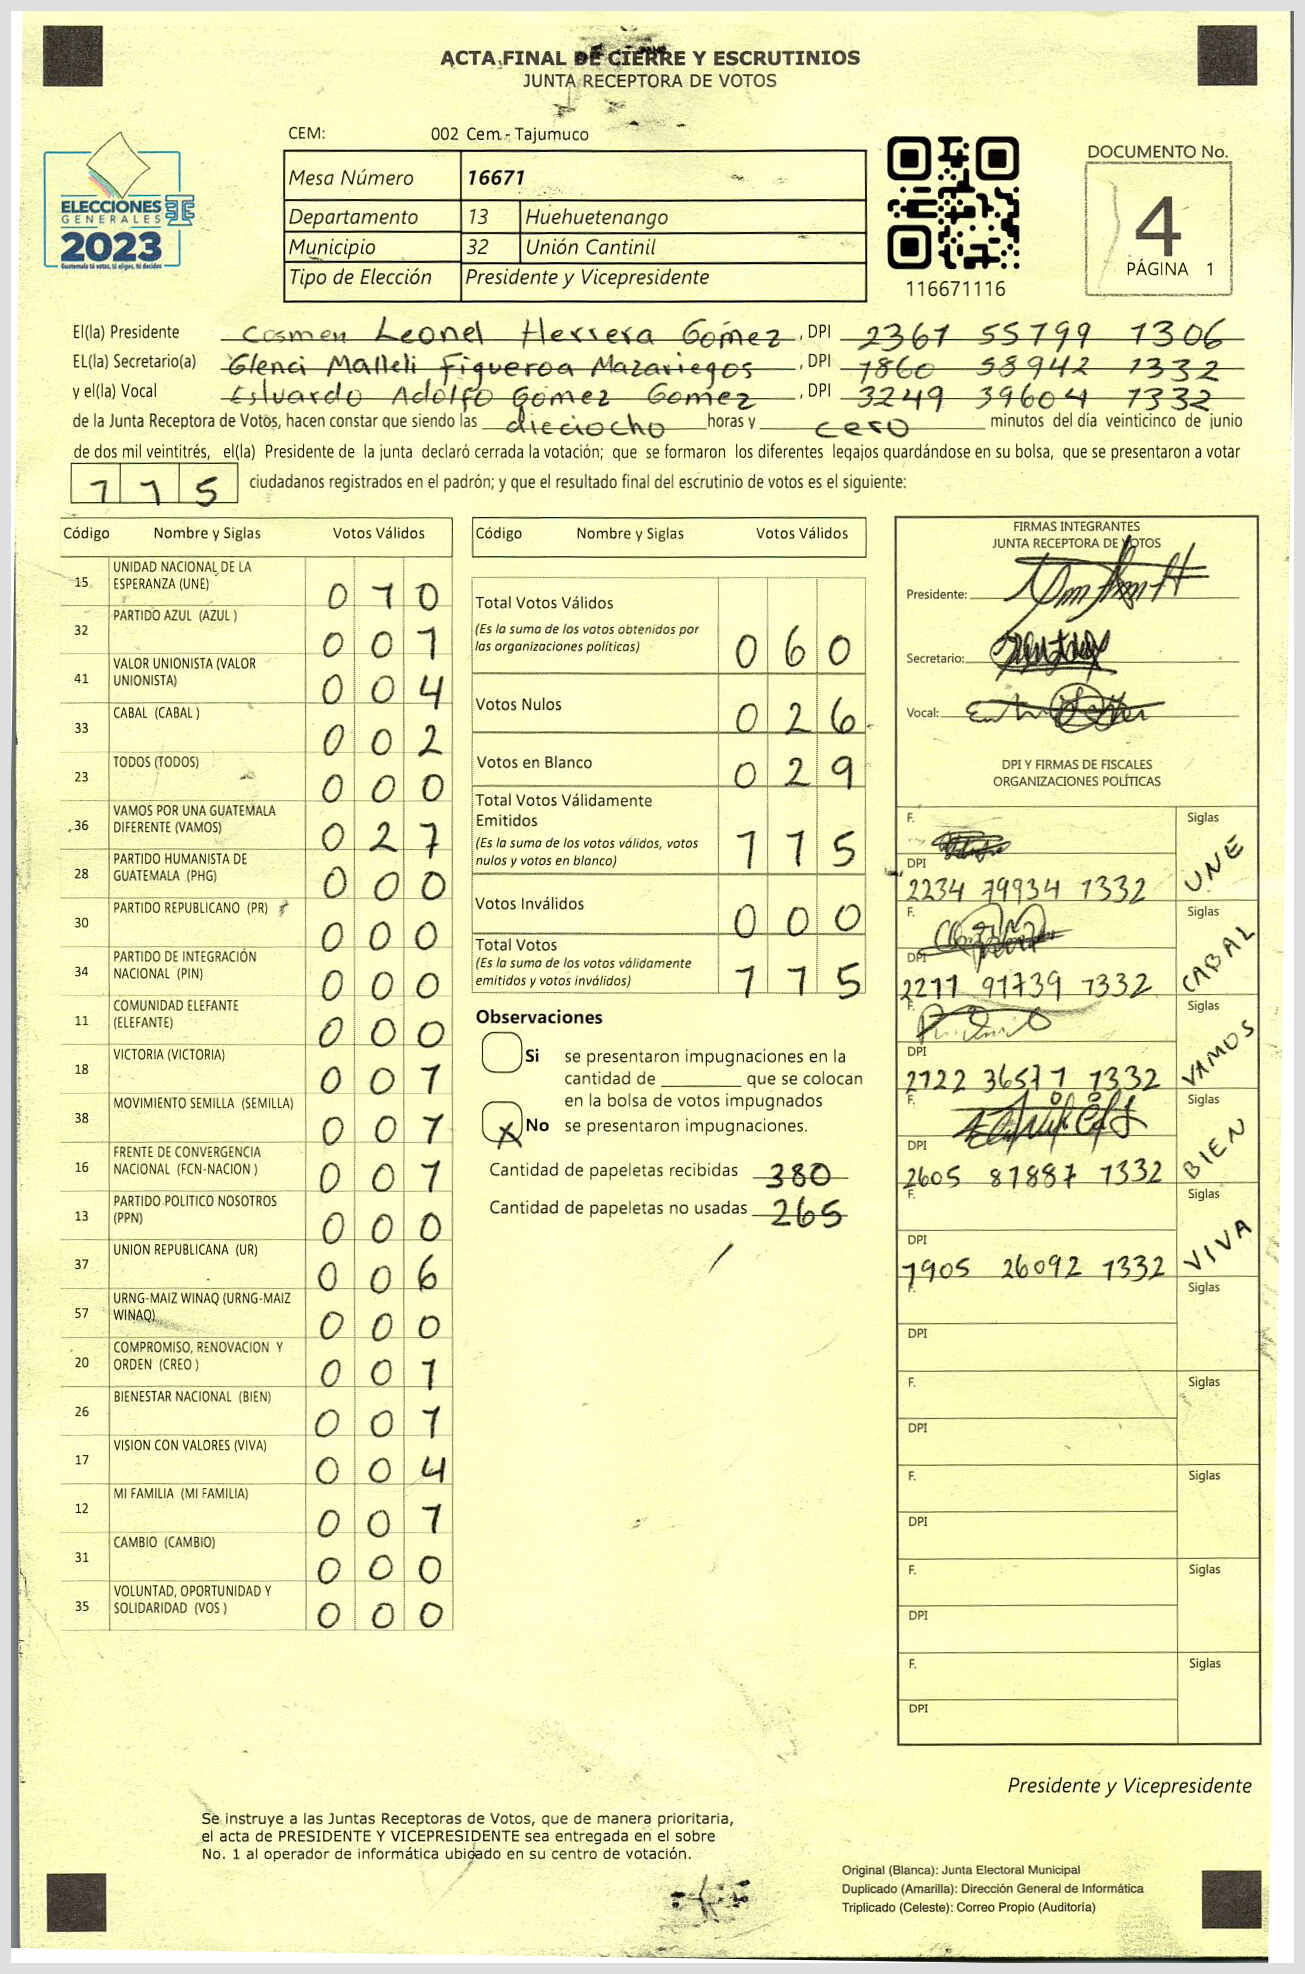 ACTA FINAL DE CIERRE Y ESCRUTINIOS
JUNTA RECEPTORA DE VOTOS
CEM: 002 Cem.- Tajumuco
ELECCIONES
GENERALES
2023
Guatemala tú votas, tú eliges, tú decides
Mesa Número 16671
Departamento 13 Huehuetenango
Municipio 32 Unión Cantinil
Tipo de Elección Presidente y Vicepresidente
116671116
DOCUMENTO No.
4
PÁGINA 1
El(la) Presidente Cosmen Leonel Herrera Gómez, DPI 2361 55799 1306
EL(la) Secretario(a) Glenci Malleli Figueroa Mazariegos, DPI 1860 58942 1332
y el(la) Vocal Estuardo Adolfo Gómez Gomez, DPI 3249 39604 1332
de la Junta Receptora de Votos, hacen constar que siendo las dieciocho horas y cero minutos del día veinticinco de junio
de dos mil veintitrés, el(la) Presidente de la junta declaró cerrada la votación; que se formaron los diferentes legajos guardándose en su bolsa, que se presentaron a votar
115 ciudadanos registrados en el padrón; y que el resultado final del escrutinio de votos es el siguiente:
Código Nombre y Siglas Votos Válidos
15 UNIDAD NACIONAL DE LA ESPERANZA (UNE) 010
32 PARTIDO AZUL (AZUL ) 001
41 VALOR UNIONISTA (VALOR UNIONISTA) 004
33 CABAL (CABAL ) 002
23 TODOS (TODOS) 000
36 VAMOS POR UNA GUATEMALA DIFERENTE (VAMOS) 027
28 PARTIDO HUMANISTA DE GUATEMALA (PHG) 000
30 PARTIDO REPUBLICANO (PR) 000
34 PARTIDO DE INTEGRACIÓN NACIONAL (PIN) 000
11 COMUNIDAD ELEFANTE (ELEFANTE) 000
18 VICTORIA (VICTORIA) 001
38 MOVIMIENTO SEMILLA (SEMILLA) 001
16 FRENTE DE CONVERGENCIA NACIONAL (FCN-NACION ) 001
13 PARTIDO POLITICO NOSOTROS (PPN) 000
37 UNION REPUBLICANA (UR) 006
57 URNG-MAIZ WINAQ (URNG-MAIZ WINAQ) 000
20 COMPROMISO, RENOVACION Y ORDEN (CREO ) 001
26 BIENESTAR NACIONAL (BIEN) 001
17 VISION CON VALORES (VIVA) 004
12 MI FAMILIA (MI FAMILIA) 001
31 CAMBIO (CAMBIO) 000
35 VOLUNTAD, OPORTUNIDAD Y SOLIDARIDAD (VOS ) 000
Código Nombre y Siglas Votos Válidos
Total Votos Válidos 060
(Es la suma de los votos obtenidos por
las organizaciones políticas)
Votos Nulos 026
Votos en Blanco 029
Total Votos Válidamente
Emitidos 115
(Es la suma de los votos válidos, votos
nulos y votos en blanco)
Votos Inválidos 000
Total Votos 115
(Es la suma de los votos válidamente
emitidos y votos inválidos)
Observaciones
Si se presentaron impugnaciones en la
cantidad de ________ que se colocan
en la bolsa de votos impugnados
X No se presentaron impugnaciones.
Cantidad de papeletas recibidas 380
Cantidad de papeletas no usadas 265
FIRMAS INTEGRANTES
JUNTA RECEPTORA DE VOTOS
Presidente:
Secretario:
Vocal:
DPI Y FIRMAS DE FISCALES
ORGANIZACIONES POLÍTICAS
F. Siglas UNE
DPI 2234 79934 1332
F. Siglas CABAL
DPI 2211 91739 1332
F. Siglas VAMOS
DPI 2122 36571 1332
F. Siglas BIEN
DPI 2605 81887 1332
F. Siglas VIVA
DPI 1905 26092 1332
F. Siglas
DPI
F. Siglas
DPI
F. Siglas
DPI
F. Siglas
DPI
F. Siglas
DPI
Presidente y Vicepresidente
Se instruye a las Juntas Receptoras de Votos, que de manera prioritaria,
el acta de PRESIDENTE Y VICEPRESIDENTE sea entregada en el sobre
No. 1 al operador de informática ubicado en su centro de votación.
Original (Blanca): Junta Electoral Municipal
Duplicado (Amarilla): Dirección General de Informática
Triplicado (Celeste): Correo Propio (Auditoría)